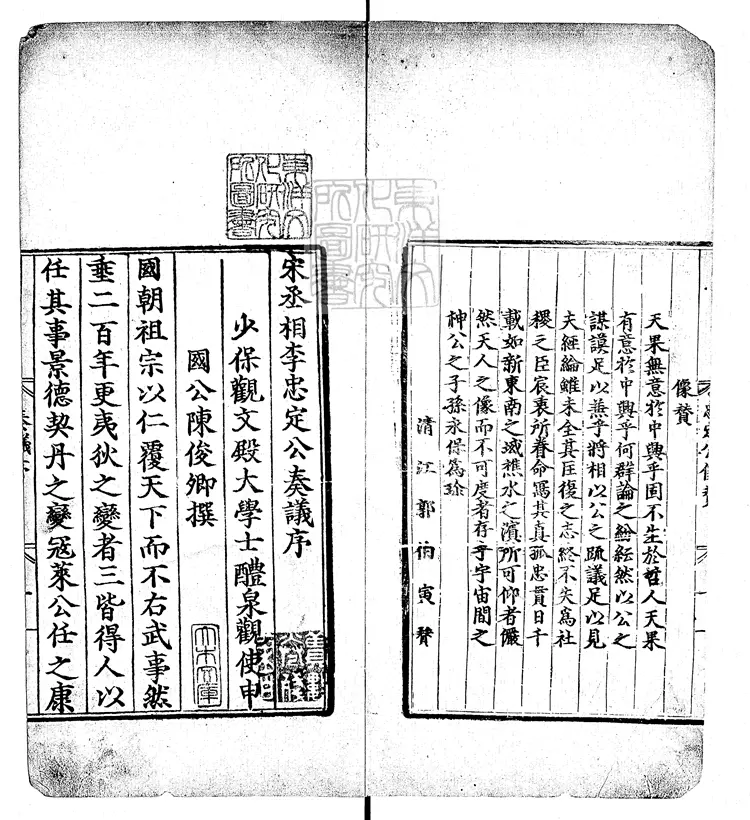 像贊
天果無意於中興乎固不生於哲人天果
有意於中興乎何群論之紛紜然以公之
謀謨足以兼乎將相以公之踈議足以見
夫經綸雖未全其匡復之志終不失為社
稷之臣宸衷所眷命寫其真孤忠貫日千
載如新東南之城樵水之濱所可仰者儼
然天人之像而不可度者存乎宇宙間之
神公之子孫永保為珍
清江郭伯寅贊
宋丞相李忠定公奏議序
少保觀文殿大學士醴泉觀使申
國公陳俊卿撰
國朝祖宗以仁覆天下而不右武事然
垂二百年更夷狄之變者三皆得人以
任其事景德契丹之變寇萊公任之康
東洋文化研究所圖書
大木文庫